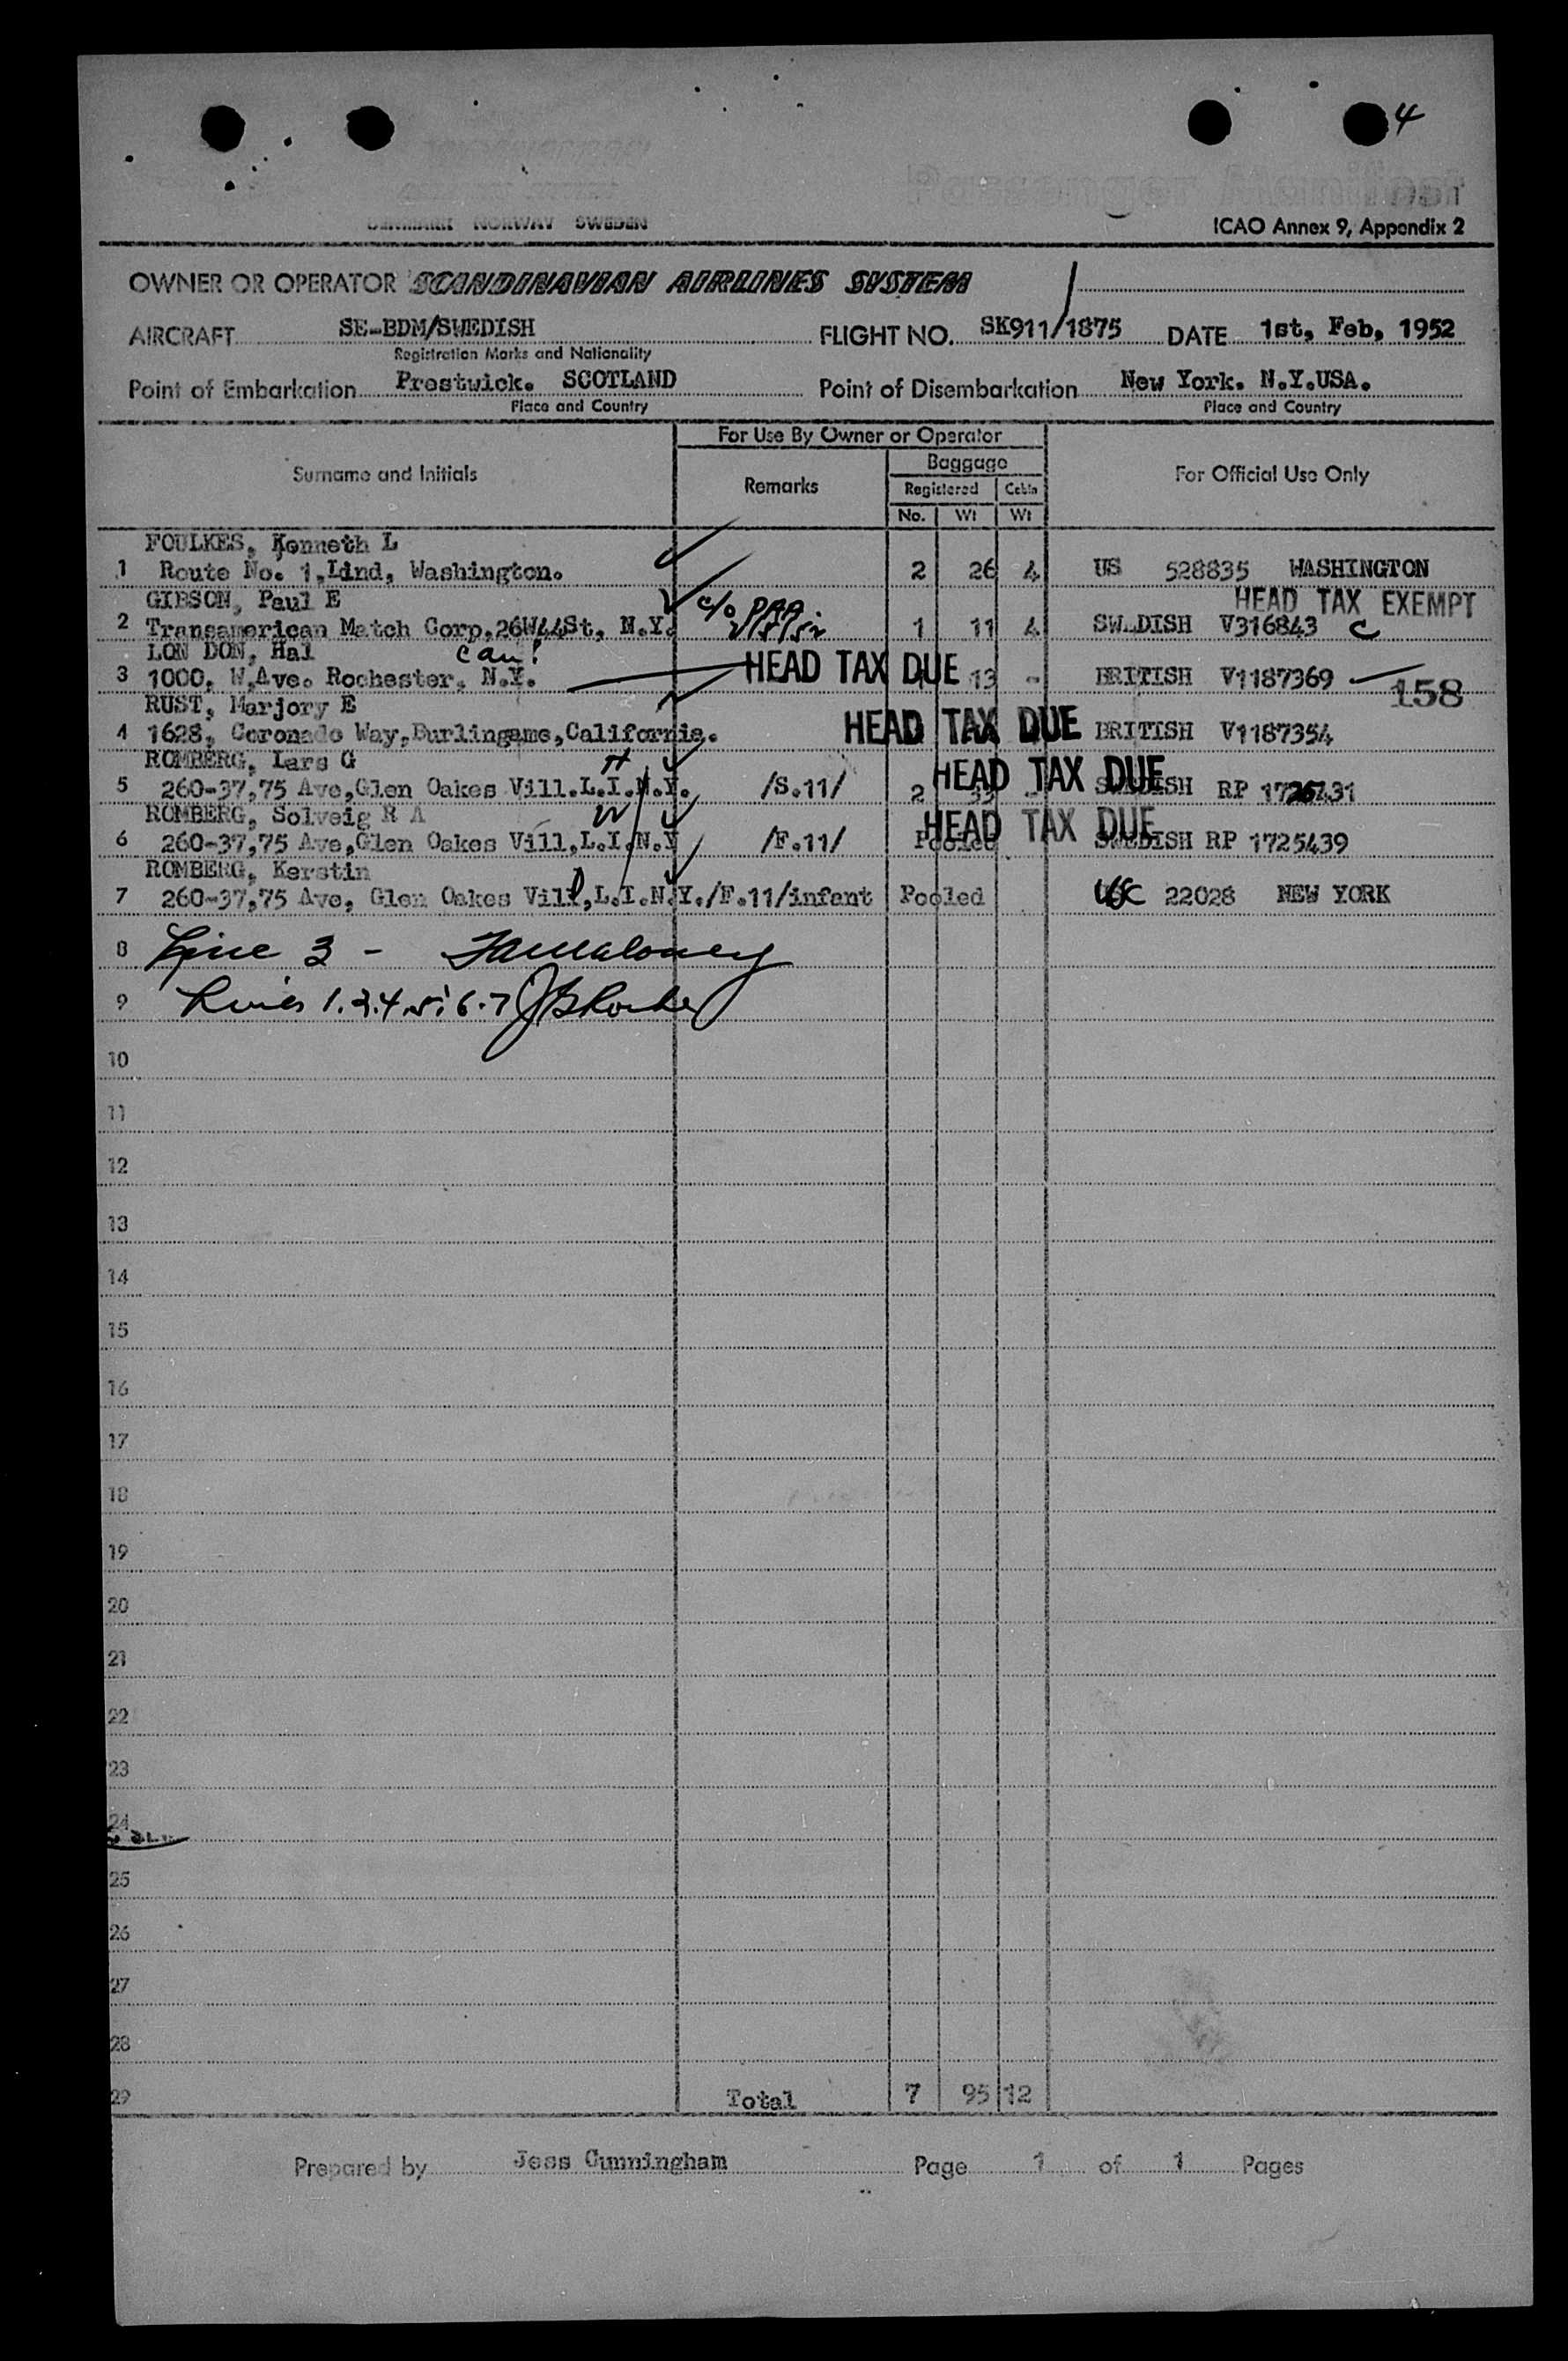 4
DENMARK NORWAY SWEDEN
ICAO Annex 9, Appendix 2
OWNER OR OPERATOR SCANDINAVIAN AIRLINES SYSTEM
AIRCRAFT SE-BDM/SWEDISH FLIGHT NO. SK911/1875 DATE 1st, Feb, 1952
Registration Marks and Nationality
Point of Embarkation Prestwick. SCOTLAND Point of Disembarkation New York. N.Y.USA.
Place and Country Place and Country
For Use By Owner or Operator
Surname and Initials Remarks Baggage For Official Use Only
Registered Cabin
No. Wt Wt
FOULKES, Kenneth L
1 Route No. 1,Lind, Washington. 2 26 4 US 528835 WASHINGTON
GIBSON, Paul E c/o PAA HEAD TAX EXEMPT
2 Transamerican Match Corp,26W44St, N.Y. 1 11 4 SW.DISH V316843 C
LON DON, Hal can!
3 1000, W.Ave. Rochester, N.Y. HEAD TAX DUE 13 - BRITISH V1187369 158
RUST, Marjory E
4 1628, Coronado Way,Burlingame,California. HEAD TAX DUE BRITISH V1187354
ROMBERG, Lars G H
5 260-37,75 Ave,Glen Oakes Vill.L.I.N.Y. /S.11/ 2 HEAD TAX DUE SWEDISH RP
ROMBERG, Solveig R A W
6 260-37,75 Ave,Glen Oakes Vill,L.I.N.Y /F.11/ Pooled HEAD TAX DUE SWEDISH RP 1725439
ROMBERG, Kerstin
7 260-37,75 Ave, Glen Oakes Vill,L.I.N.Y./F.11/infant Pooled USC 22028 NEW YORK
8 Line 3 -
9 Lines
10
11
12
13
14
15
16
17
18
19
20
21
22
23
24
25
26
27
28
29 Total 7 95 12
Prepared by Jess Cunningham Page 1 of 1 Pages